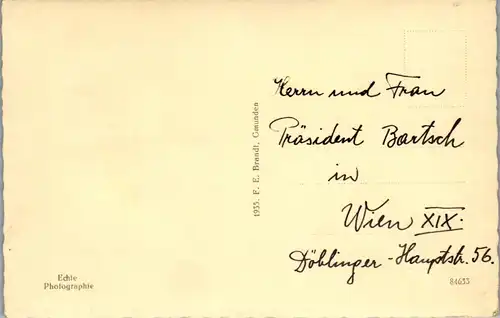 Herrn und Frau
Präsident Bartsch
in
Wien XIX.
Döblinger-Hauptstr. 56.
1935. F. E. Brandt, Gmunden
Echte
Photographie
84633